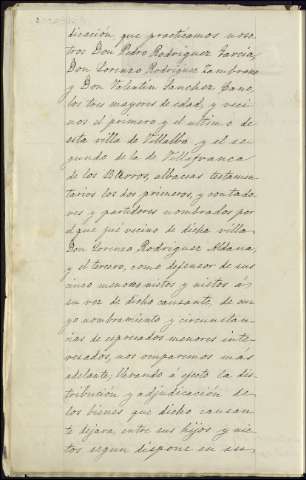 dicación, que practicamos noso-
tros Don Pedro Rodriguez Garcia,
Don Lorenzo Rodriguez Zambrano
y Don Valentin Sanchez Cano,
los tres mayores de edad, y veci-
nos el primero y el ultimo de
esta villa de Villalba y el se-
gundo de la de Villafranca
de los Barros, albaceas testamen-
tarios los dos primeros, y contado-
res y partidores nombrados por
el que fué vecino de dicha villa
Don Lorenzo Rodriguez Aldana,
y el tercero, como defensor de sus
cinco menores nietos y nietas á
su vez de dicho causante, de cu-
yo nombramiento y circunstan-
cias de espresados menores inte-
resados, nos ocuparemos más
adelante; llevando á efecto la dis-
tribución y adjudicación de
los bienes que dicho causan-
te dejara, entre sus hijos y nie-
tos segun dispone en su